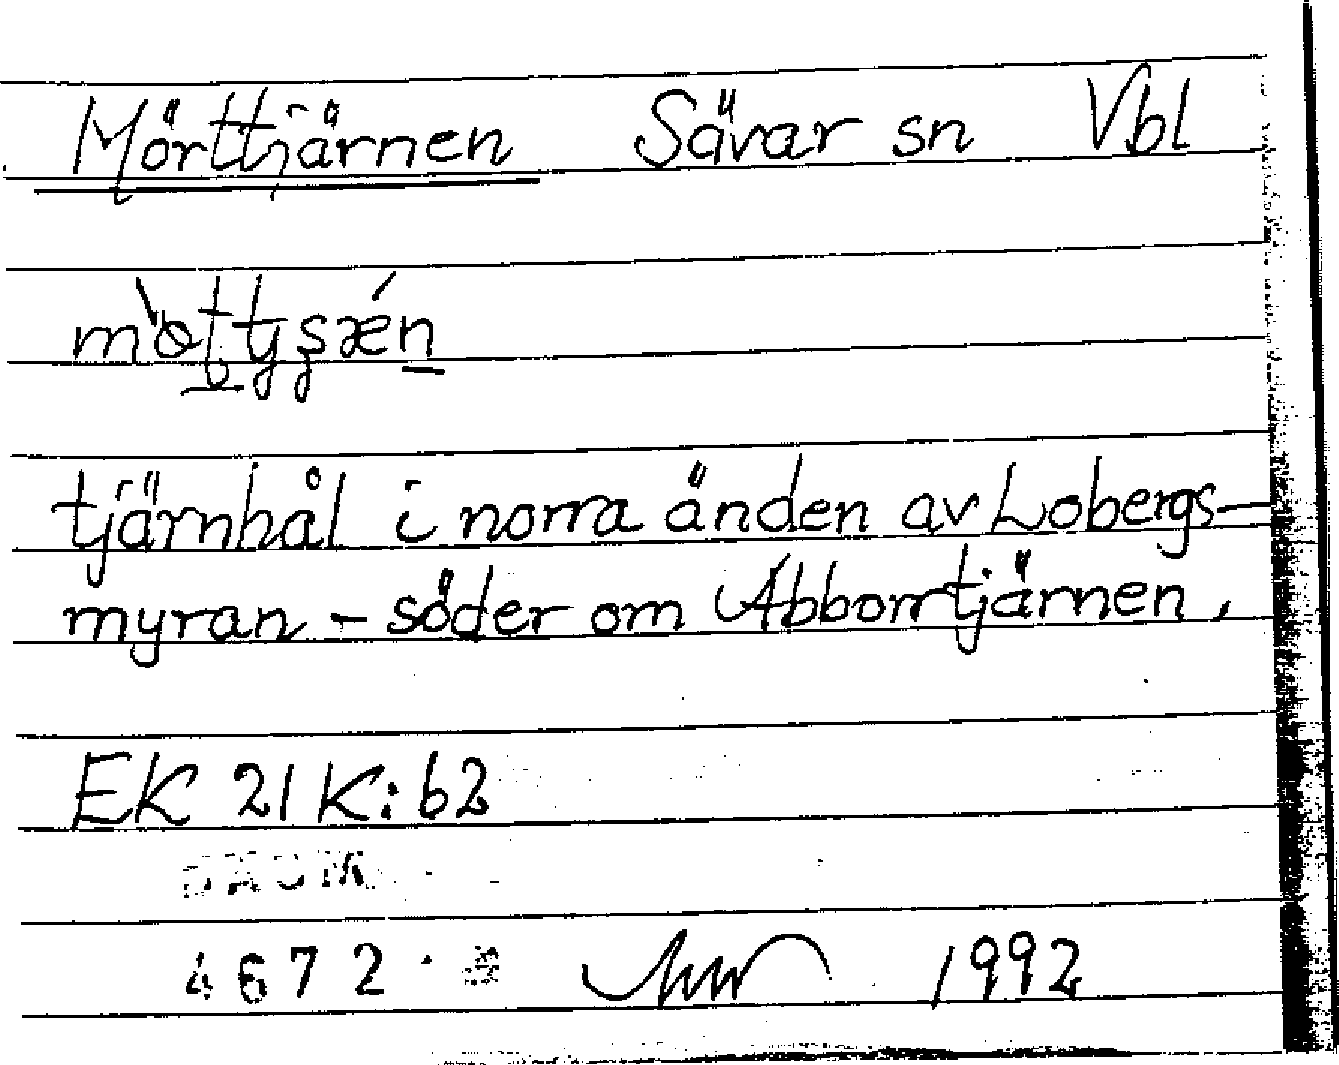 Mörttjärnen Sävar sn Vbl
tjärnhål i norra änden av Lobergs-
myran - söder om Abborrtjärnen.
EK 21 K:b2
DAUM
4672
1992